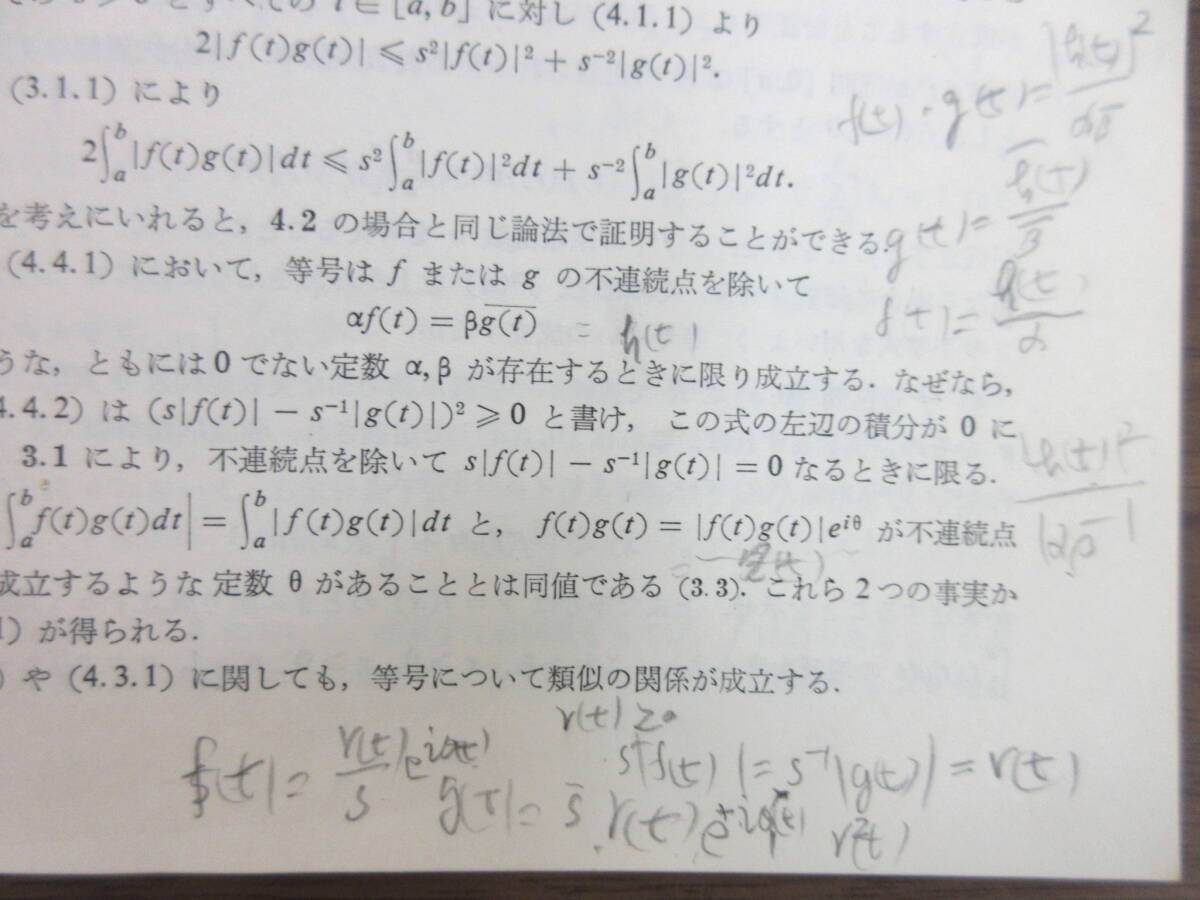 ∈ [a, b] に対し (4.1.1) より
2|f(t)g(t)| ≤ s²|f(t)|² + s⁻²|g(t)|².
(3.1.1) により
2∫ₐᵇ|f(t)g(t)|dt ≤ s²∫ₐᵇ|f(t)|²dt + s⁻²∫ₐᵇ|g(t)|²dt.
を考えにいれると, 4.2 の場合と同じ論法で証明することができる.
(4.4.1) において, 等号は f または g の不連続点を除いて
αf(t) = βg(t)‾ = h(t)
うな, ともには 0 でない定数 α, β が存在するときに限り成立する. なぜなら,
4.4.2) は (s|f(t)| − s⁻¹|g(t)|)² ≥ 0 と書け, この式の左辺の積分が 0 に
3.1 により, 不連続点を除いて s|f(t)| − s⁻¹|g(t)| = 0 なるときに限る.
∫ₐᵇf(t)g(t)dt| = ∫ₐᵇ|f(t)g(t)|dt と, f(t)g(t) = |f(t)g(t)|e^{iθ} が不連続点
成立するような定数 θ があることとは同値である (3.3). これら 2 つの事実か
1) が得られる.
) や (4.3.1) に関しても, 等号について類似の関係が成立する.
f(t)・g(t) = |h(t)|²
g(t) = h(t)/β
f(t) = h(t)/α
|h(t)|²
r(t) ≥ 0
s|f(t)| = s⁻¹|g(t)| = r(t)
f(t) = r(t)/s
g(t) = s r(t)
r²(t)